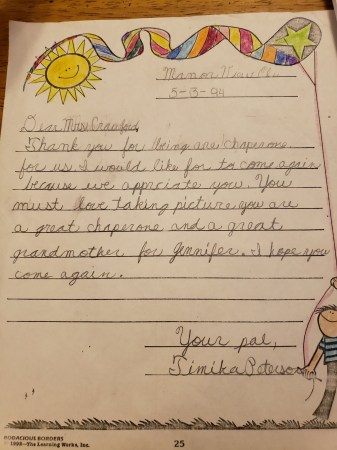 Manor
5-13-94
Dear Mrs. Crawford,
Thank you for being are chaperone
for us. I would like for to come again
because we appriciate you. You
must love taking picture you are
a great chaperone and a great
grandmother for Jennifer. I hope you
come again.
Your pal,
Timika Peterson
BODACIOUS BORDERS
—The Learning Works, Inc.
25